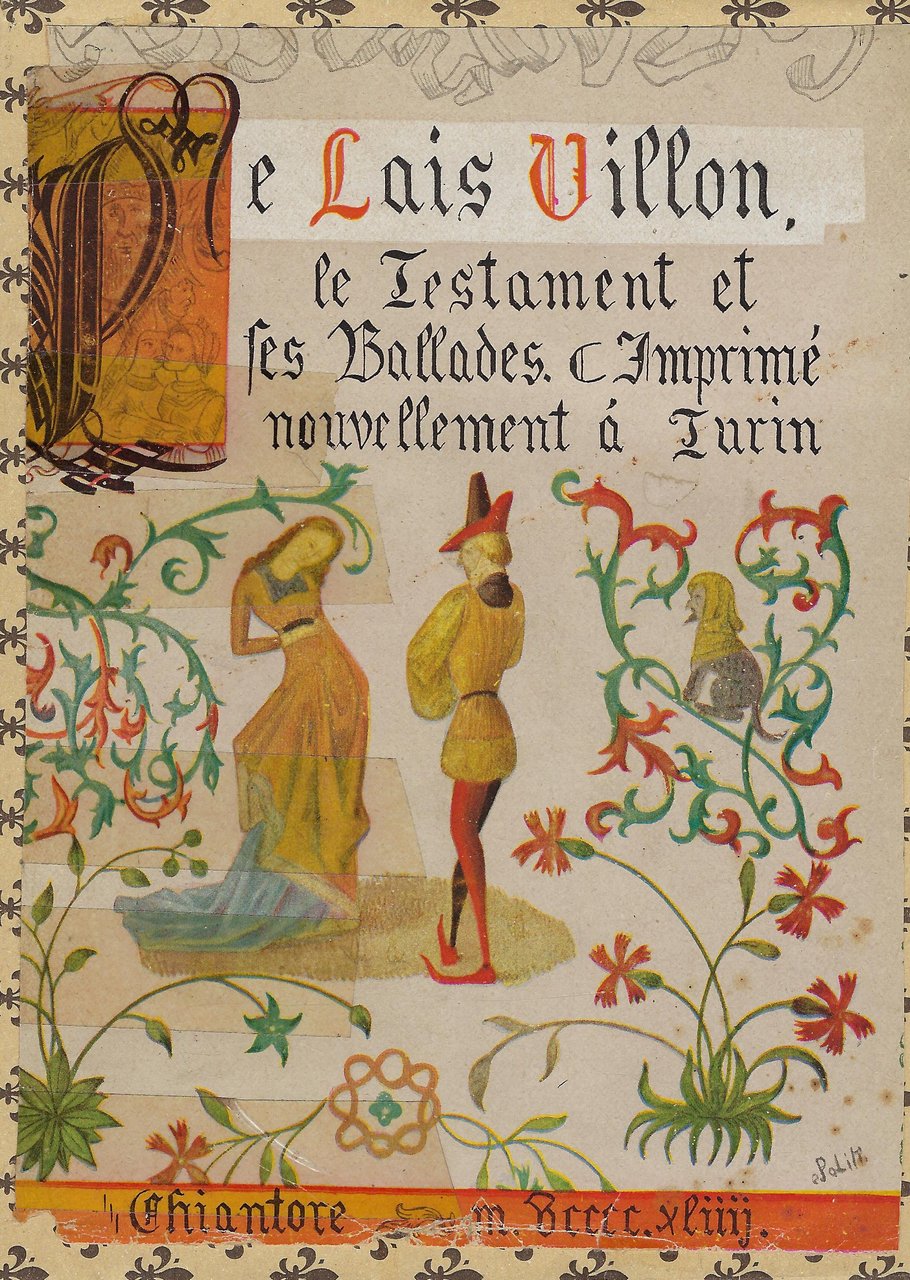 Le Lais Villon,
le Testament et
ſes Ballades. C Imprimé
nouvellement á Turin
Chiantore m. Dcccc.xliiij.